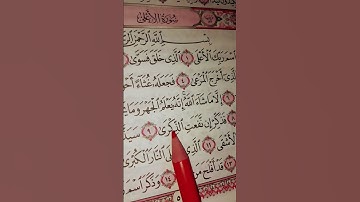 سُورَةُ الْأَعْلَىٰ
بِسْمِ اللَّهِ الرَّحْمَٰنِ
اسْمَ رَبِّكَ الْأَعْلَى ١ الَّذِي خَلَقَ فَسَوَّىٰ
الَّذِي أَخْرَجَ الْمَرْعَىٰ ٤ فَجَعَلَهُ غُثَاءً
إِلَّا مَا شَاءَ اللَّهُ إِنَّهُ يَعْلَمُ الْجَهْرَ وَمَا
فَذَكِّرْ إِن نَّفَعَتِ الذِّكْرَىٰ ٩
الْأَشْقَى ١١ الَّذِي النَّارَ الْكُبْرَىٰ
١٣ قَدْ أَفْلَحَ مَن ١٤ وَذَكَرَ اسْمَ